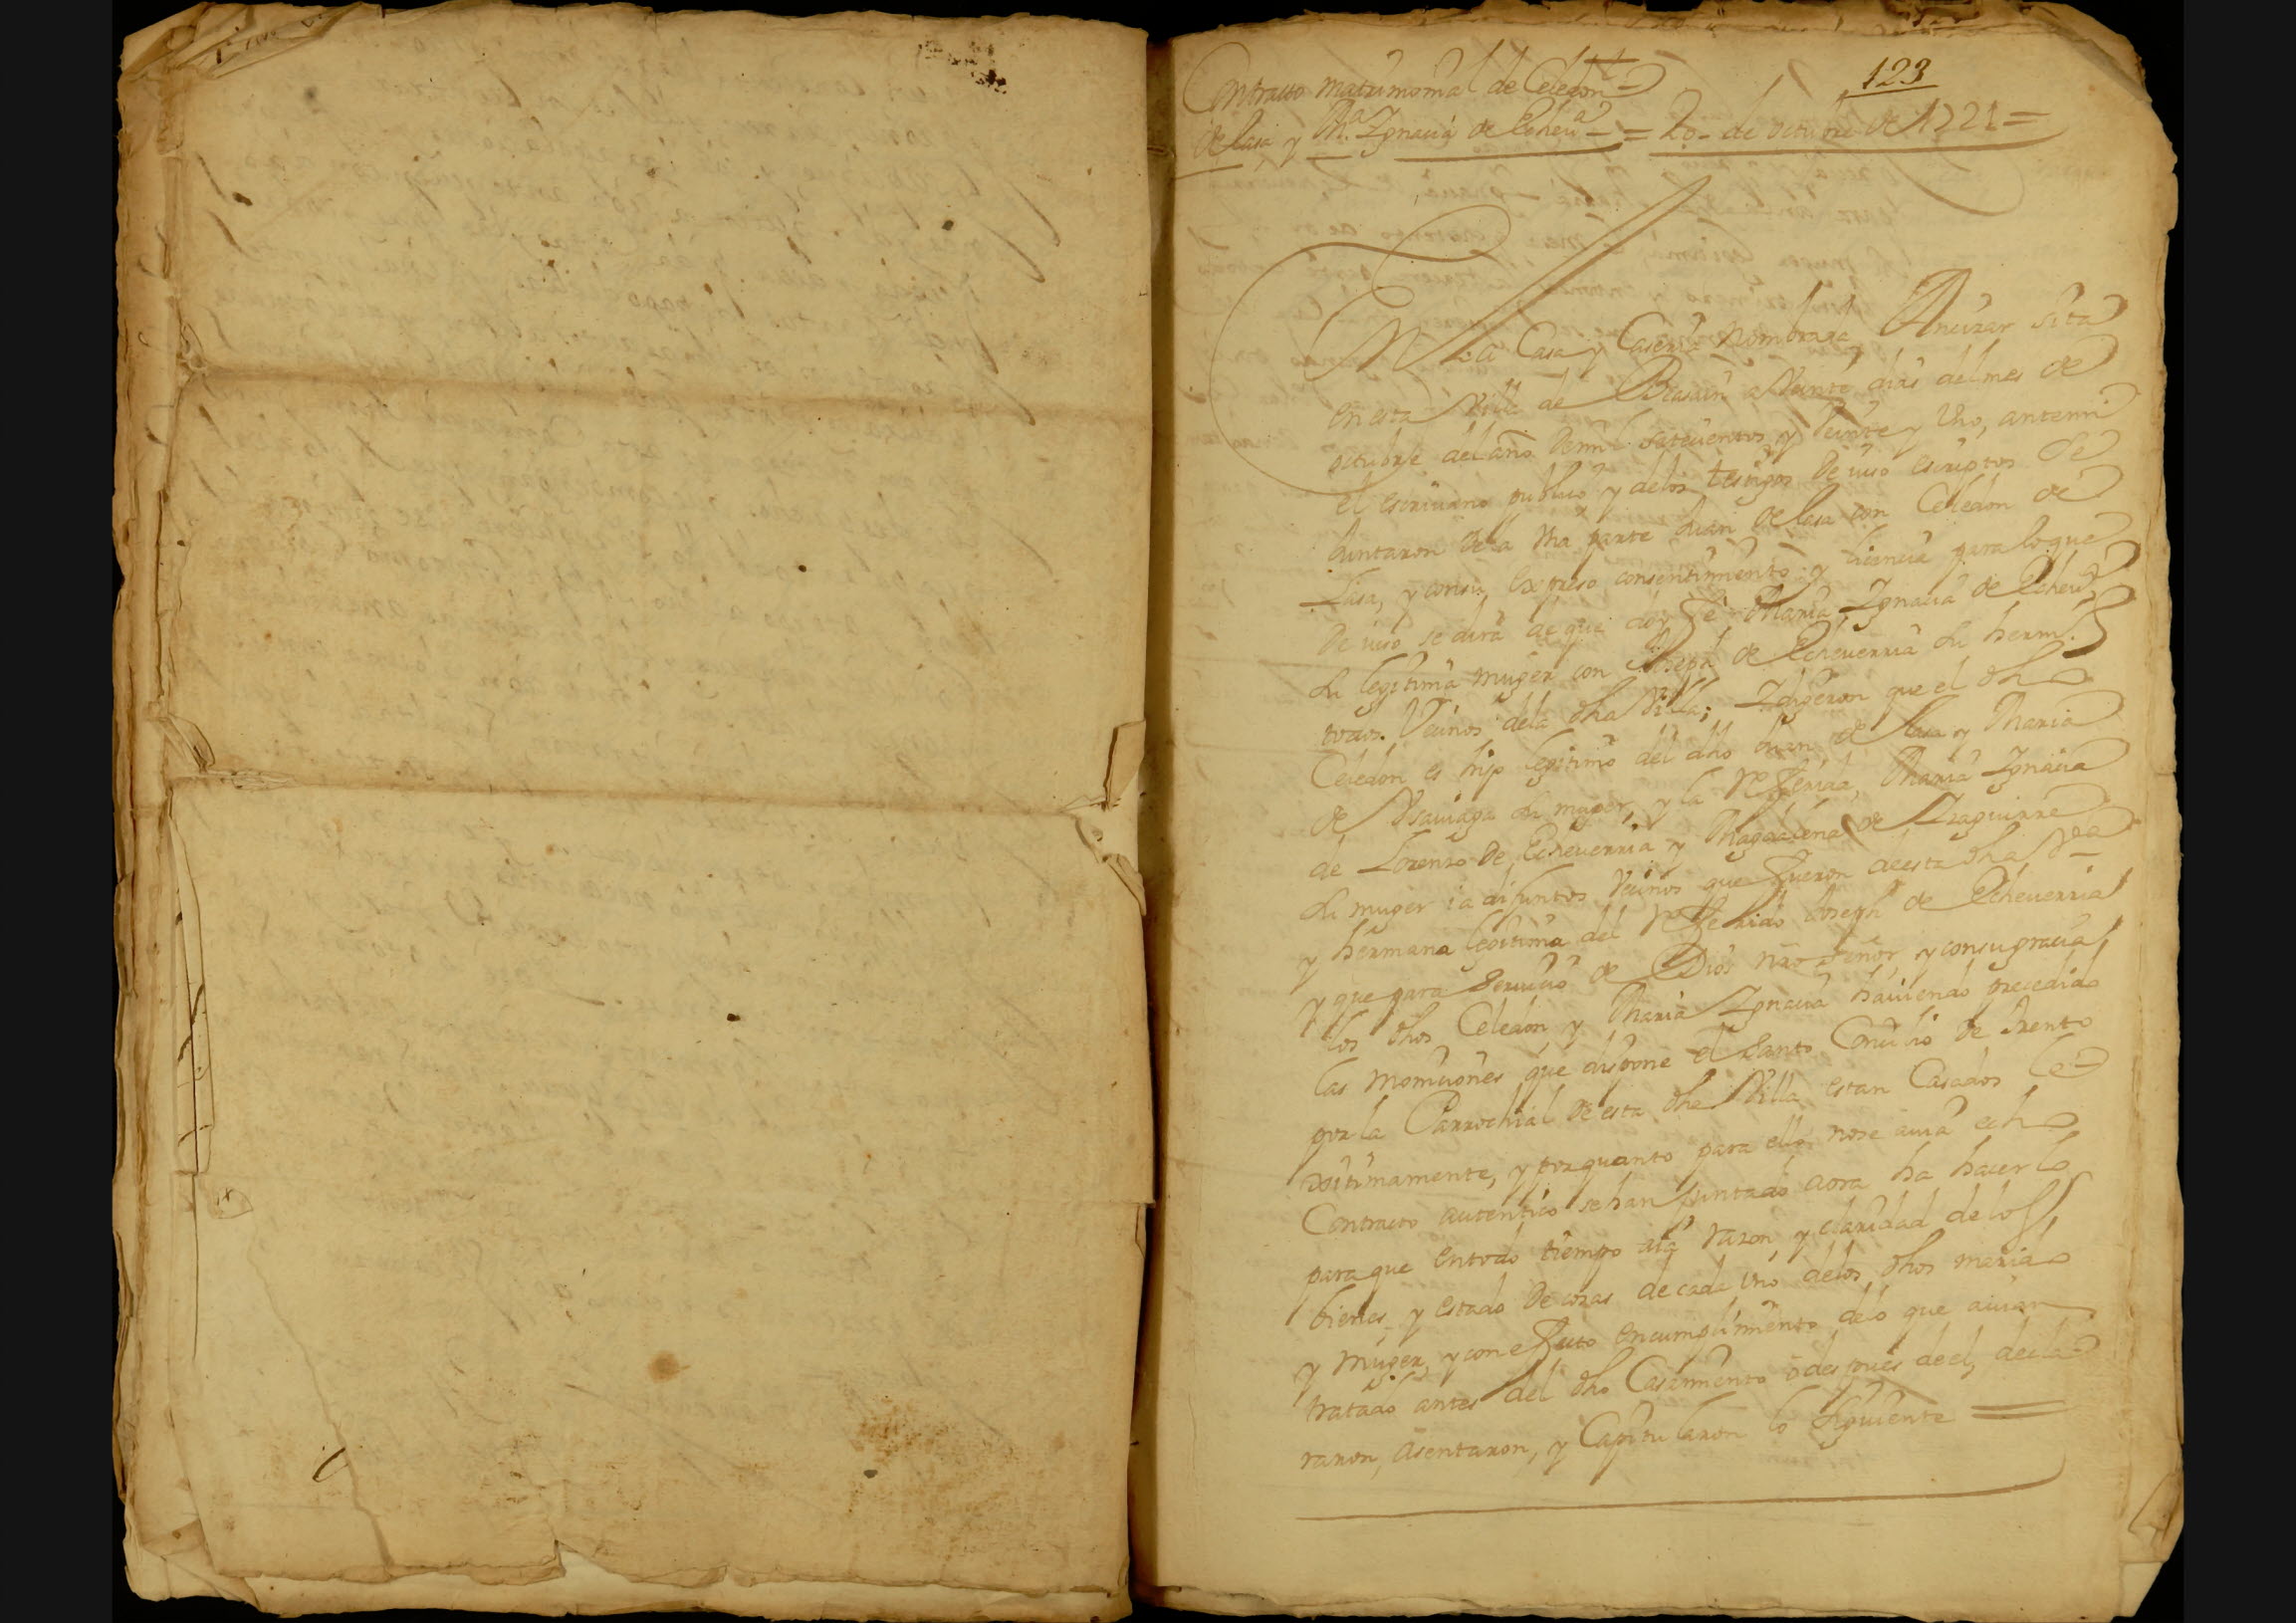 123
Contracto matrimonial de Celedon
de Lasa y Mª Ygnacia de Echevª = 20 de octubre de 1721 =
En La Casa y Caseria nombrada Ancizar sita
en esta Villa de Beasain a Veinte dias del mes de
octubre del año de mil setecientos y Veinte y Uno, antemi
el escrivano publico y delos testigos de iuso escriptos se
Juntaron dela Vna parte Juan de Lasa con Celedon de
Lasa, y consu expreso consentimiento y licencia para loque
de iuso se dirá de que doy fe Maria Ygnacia de Echevª
su legitima muger con Joseph de Echeverria su hermº
todos Vecinos dela dha Villa; Y digeron que el dho
Celedon es hijo legitimo del dho Juan de Lasa y Maria
de su muger, y la referida Maria Ygnacia
de Lorenzo de Echeverria y Magdalena de
su muger ia difuntos Vecinos que fueron de esta dha Vª
y hermana legitima del referido Joseph de Echeverria
y que para servicio de Dios nro señor y consu gracia
los dhos Celedon y Maria Ygnacia haviendo precedido
las moniciones que dispone el Santo Concilio de Trento
por la Parrochial de esta dha Villa estan Casados le-
xitimamente, y porquanto para ello nose avia echo
Contracto autentico sehan juntado aora ha hacerlo
paraque entodo tiempo aia razon y claridad delos
bienes y estado de cosas de cada uno delos dhos marido
y muger, y con efecto encumplimiento delo que avian
tratado antes del dho Casamiento o despues de el, decla-
raron, asentaron, y Capitularon lo siguiente =